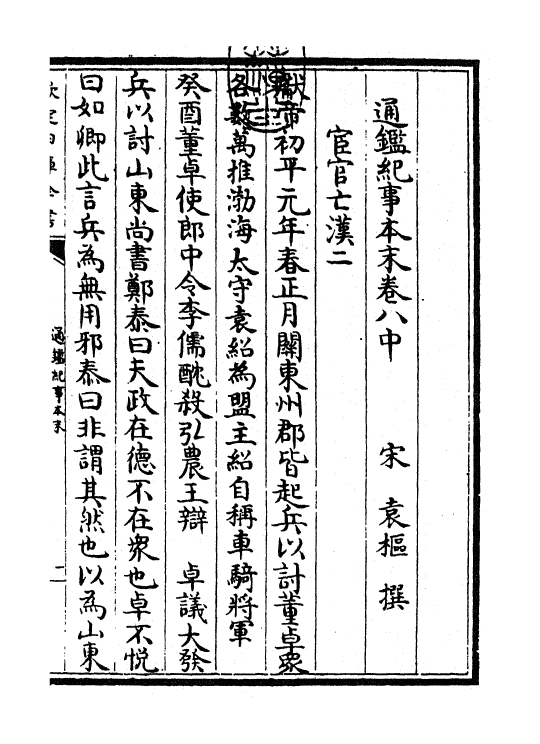 通鑑紀事本末卷八中
宋 袁樞 撰
宦官亡漢二
獻帝初平元年春正月關東州郡皆起兵以討董卓衆
各數萬推渤海太守袁紹為盟主紹自稱車騎將軍
癸酉董卓使郎中令李儒酖殺弘農王辯 卓議大發
兵以討山東尚書鄭泰曰夫政在德不在衆也卓不悅
曰如卿此言兵為無用邪泰曰非謂其然也以為山東
通鑑紀事本末